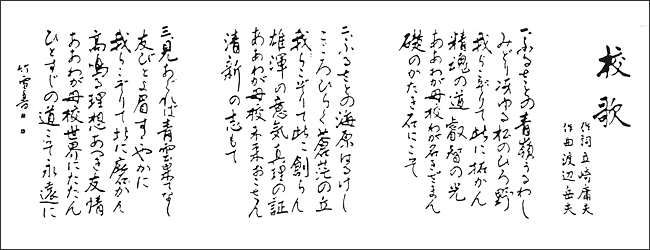 校歌
作詞 立崎庸夫
作曲 渡辺岳夫
一、ふるさとの青嶺うるわし
みどり冴ゆる松のひろ野
我らこぞりて此に拓かん
精魂の道 叡智の光
ああわが母校わが名きざまん
礎のかたき石にこそ
二、ふるさとの海原はるけし
こころひらく蒼茫の丘
我らこぞりて此に創らん
雄渾の意気真理の証
ああわが母校未来おこさん
清新の志もて
三、見あぐれば青雲果てなし
友びとよ眉すこやかに
我らこぞりて此に磨かん
高鳴る理想あつき友情
ああわが母校世界にたたん
ひとすじの道こそ永遠に
竹雪書